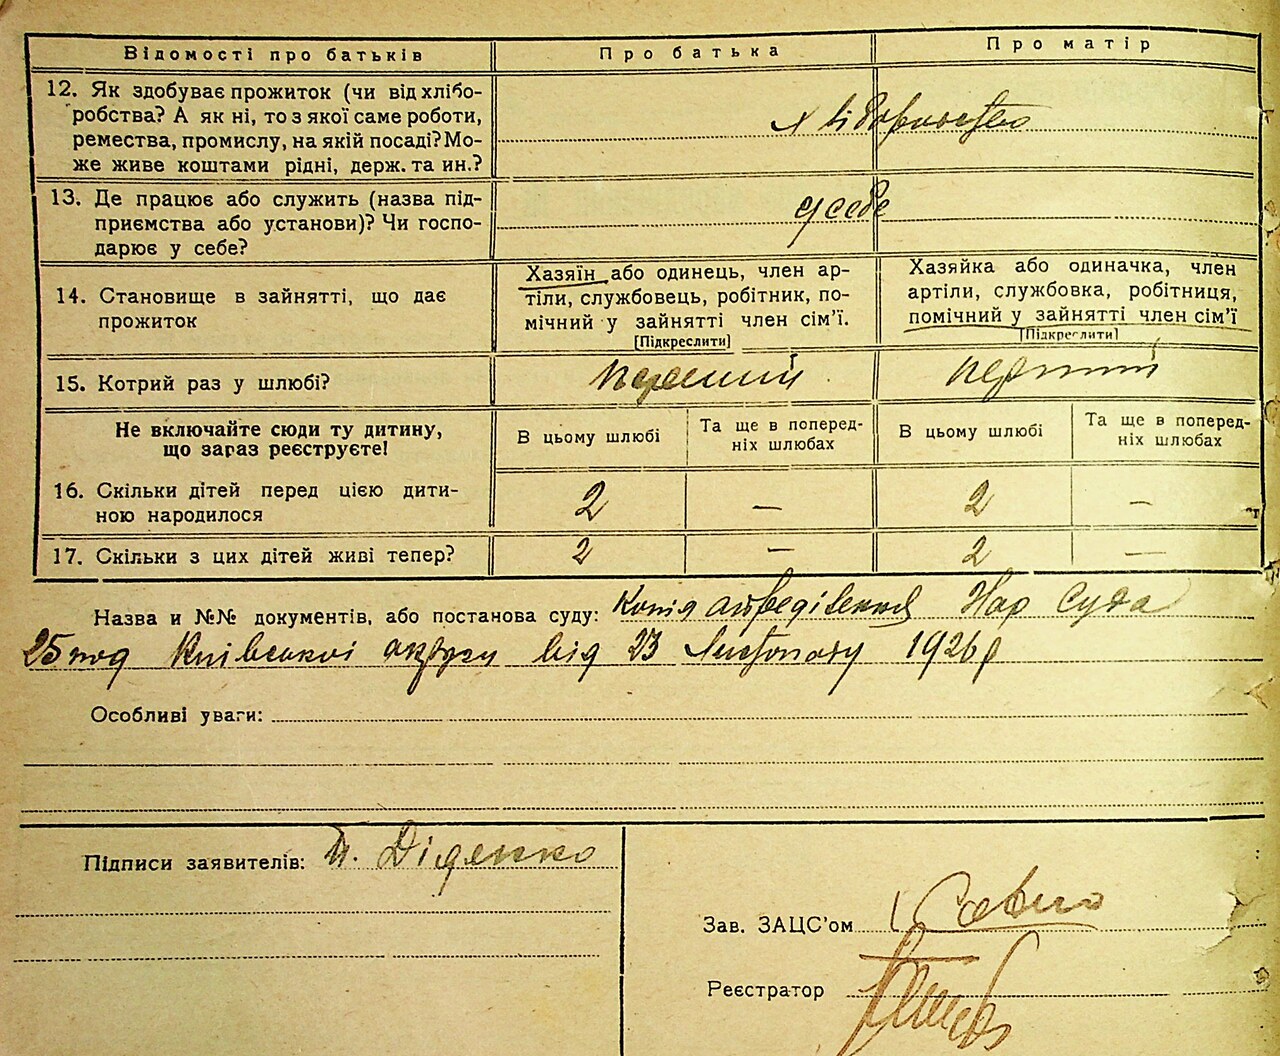 Відомості про батьків
Про батька
Про матір
12. Як здобуває прожиток (чи від хлібо-
робства? А як ні, то з якої саме роботи,
ремества, промислу, на якій посаді? Мо-
же живе коштами рідні, держ. та ин.?
хліборобство
13. Де працює або служить (назва під-
приємства або установи)? Чи госпо-
дарює у себе?
у себе
14. Становище в зайнятті, що дає
прожиток
Хазяїн або одинець, член ар-
тіли, службовець, робітник, по-
мічний у зайнятті член сім'ї.
[Підкреслити]
Хазяйка або одиначка, член
артіли, службовка, робітниця,
помічний у зайнятті член сім'ї
[Підкреслити]
15. Котрий раз у шлюбі?
перший
перший
Не включайте сюди ту дитину,
що зараз реєструєте!
В цьому шлюбі
Та ще в поперед-
ніх шлюбах
В цьому шлюбі
Та ще в поперед-
ніх шлюбах
16. Скільки дітей перед цією дити-
ною народилося
2 — 2 —
17. Скільки з цих дітей живі тепер?
2 — 2 —
Назва и №№ документів, або постанова суду: Копія Нар Суда
25 Київської округи від 23 Листопаду 1926 р
Особливі уваги:
Підписи заявителів: Діденко
Зав. ЗАЦС'ом
Реєстратор